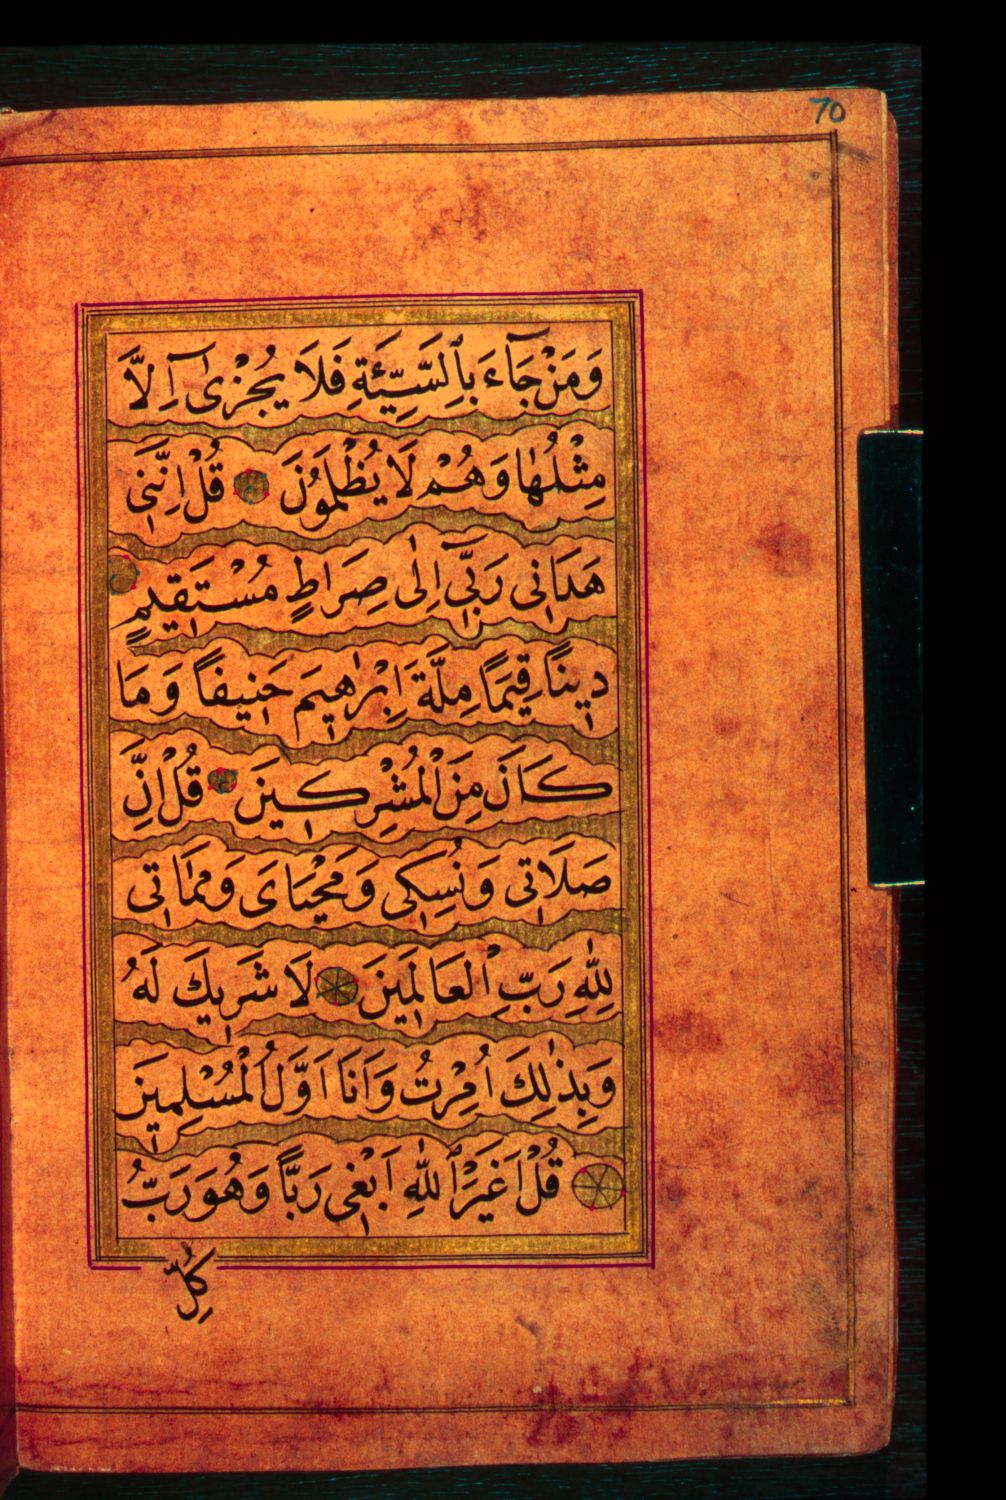 70
وَمَنْ جَآءَ بِالسَّيِّئَةِ فَلَا يُجْزٰىٓ اِلَّا
مِثْلُهَا وَهُمْ لَا يُظْلَمُونَ قُلْ اِنَّنِى
هَدَانِى رَبِّىٓ اِلٰى صِرَاطٍ مُسْتَقِيمٍ
دِينًا قِيَمًا مِلَّةَ اِبْرٰهِيمَ حَنِيفًا وَمَا
كَانَ مِنَ الْمُشْرِكِينَ قُلْ اِنَّ
صَلَاتِى وَنُسُكِى وَمَحْيَاىَ وَمَمَاتِى
لِلّٰهِ رَبِّ الْعَالَمِينَ لَا شَرِيكَ لَهُ
وَبِذٰلِكَ اُمِرْتُ وَاَنَا اَوَّلُ الْمُسْلِمِينَ
قُلْ اَغَيْرَ اللّٰهِ اَبْغِى رَبًّا وَهُوَ رَبُّ
كُلِّ